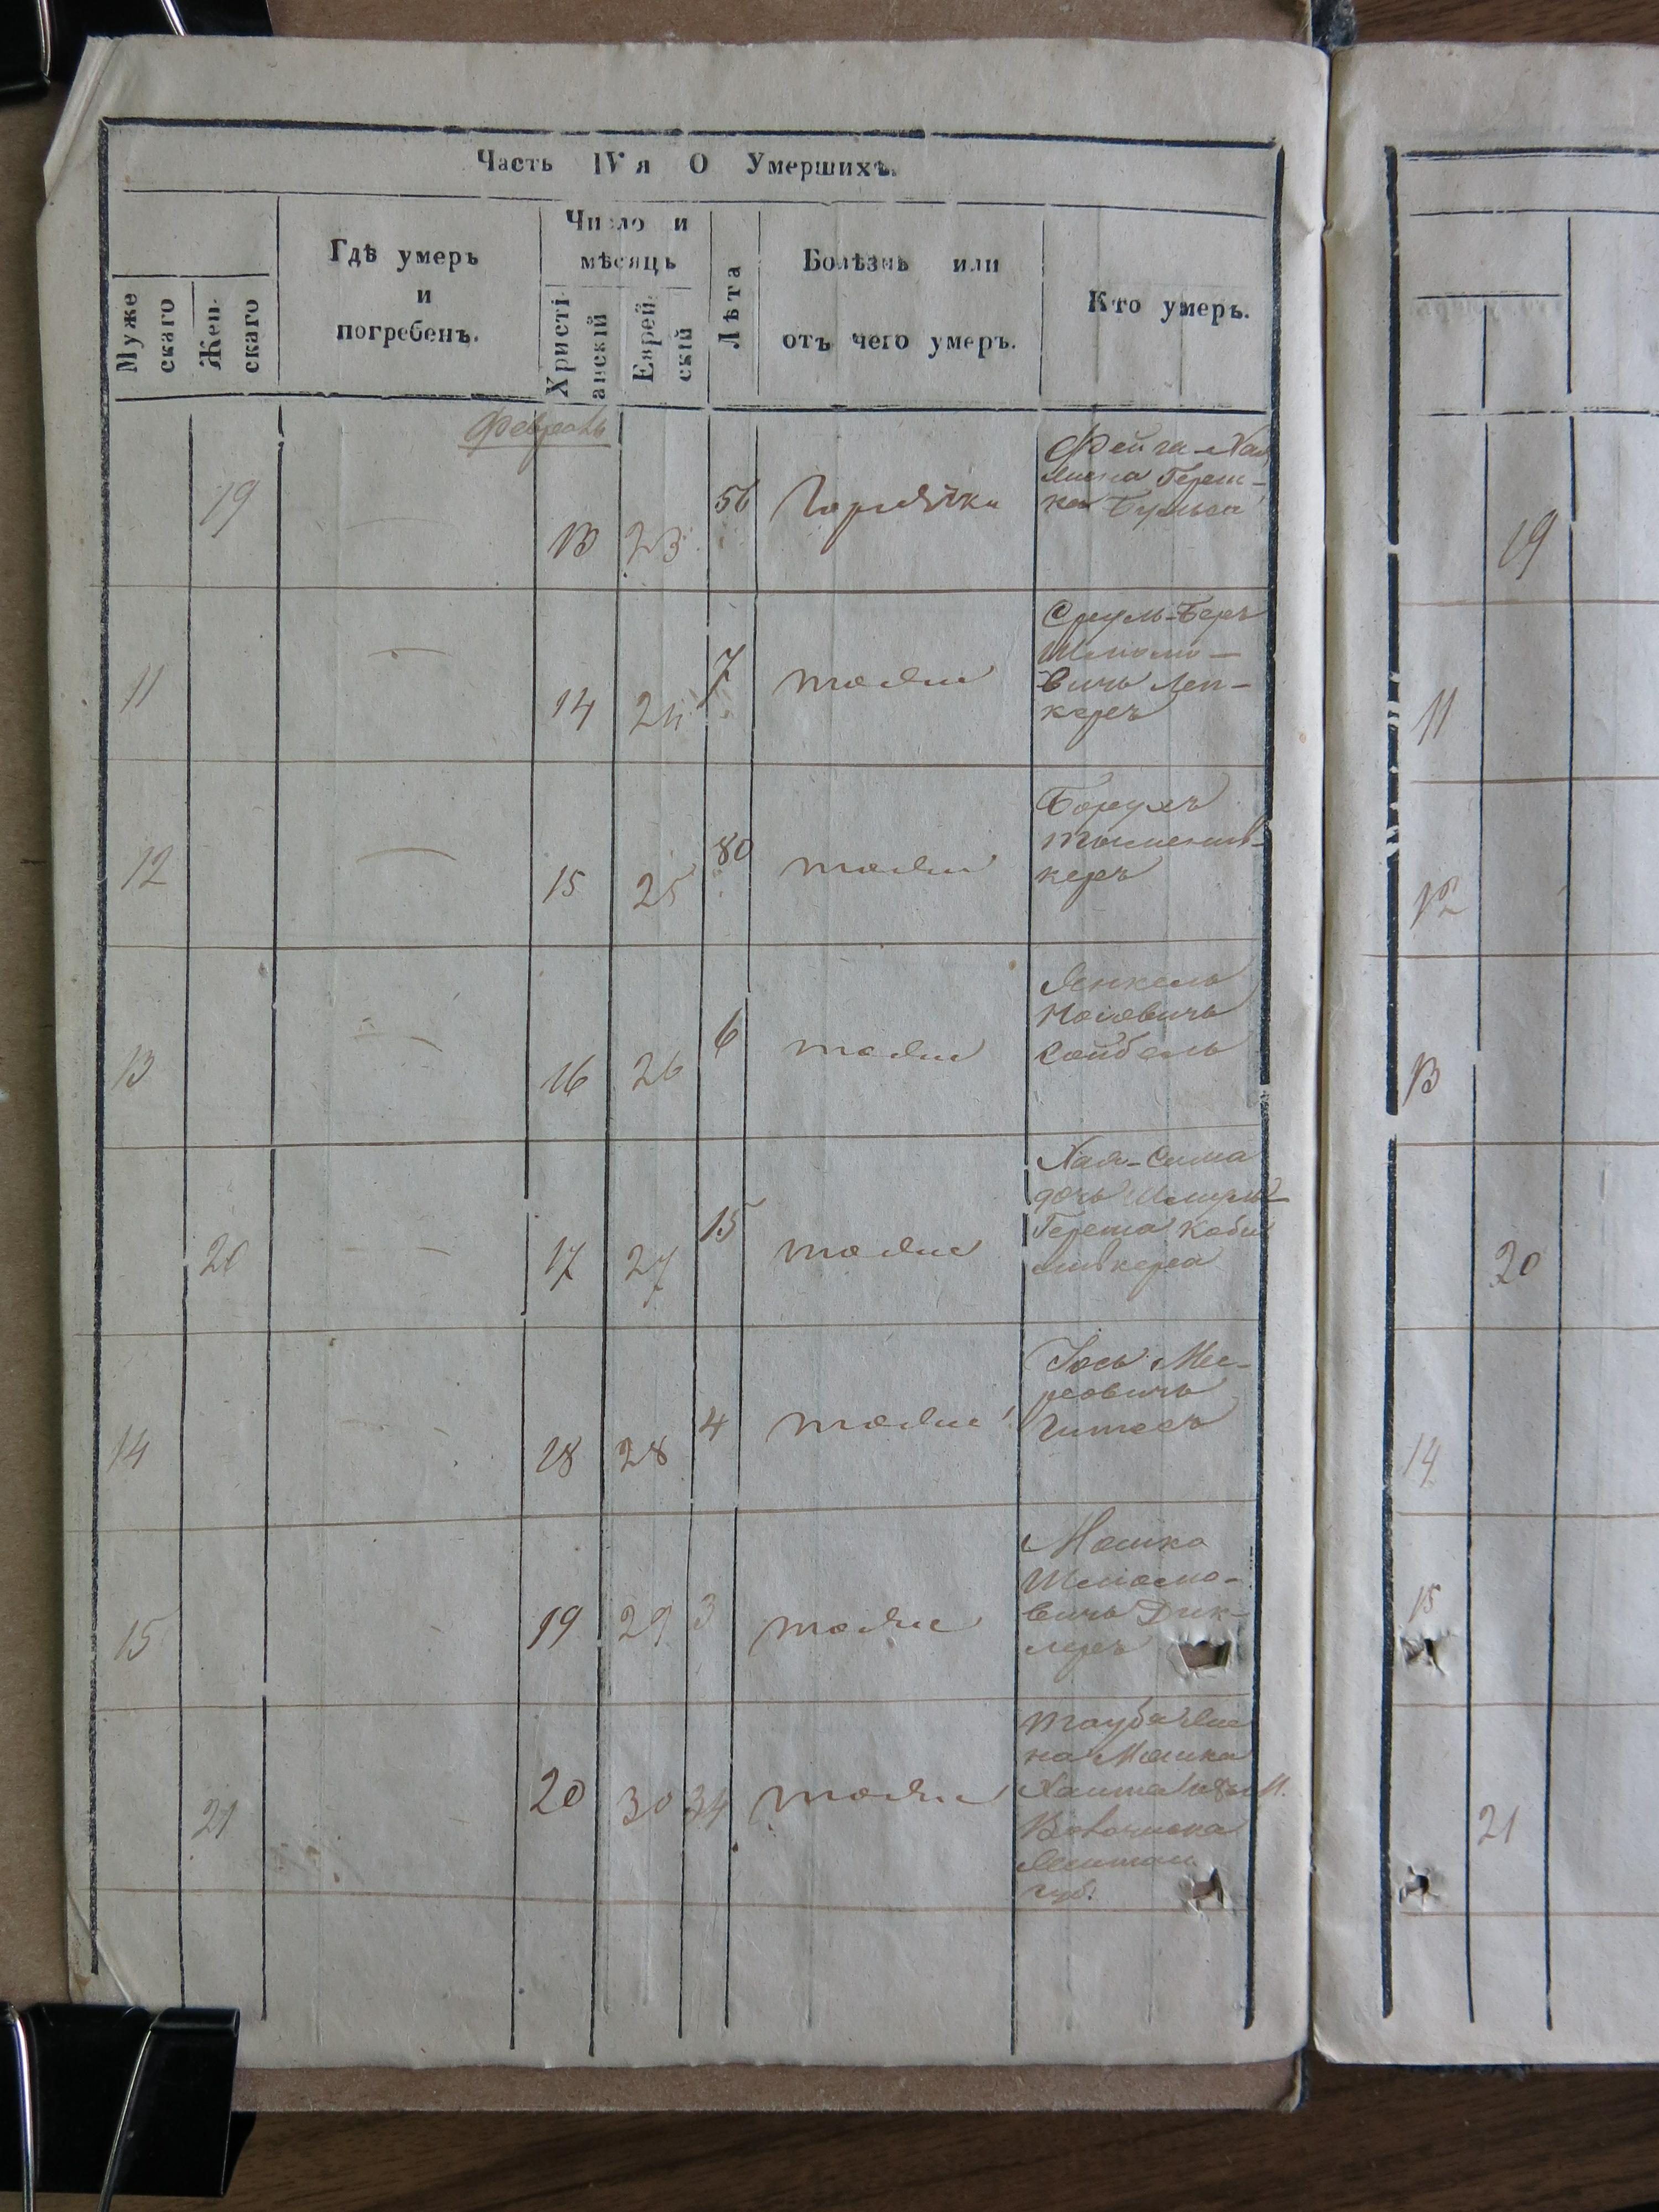 Часть IV я О Умершихъ.
Муже
скаго
Жен-
скаго
Гдѣ умеръ
и
погребенъ.
Число и
мѣсяцъ
Христі-
анскій
Еврей-
скій
Лѣта
Болѣзнь или
отъ чего умеръ.
Кто умеръ.
Февраль
19 13 23 56 Горячки
Фейга-Хая
жена Герш-
ка
11 14 24 7 тожи
Сруль-Беръ
Шлиомо-
вичь Леп-
керъ
12 15 25 80 тожи
Борухъ
керъ
13 16 26 6 тожи
Янкель
Иосіовичь
Сойбель
20 17 27 15 тожи
Хая-Сима
дочь Шмуля
Герша Коби
ливкера
14 18 28 4 тожи
Іось Ме-
ровичь
15 19 29 3 тожи
Мошко
Шлиомо-
вичь Дик-
леръ
21 20 30 34 тожи
Тауба же
на Мошка
М.
губ.
19
11
12
13
20
14
15
21